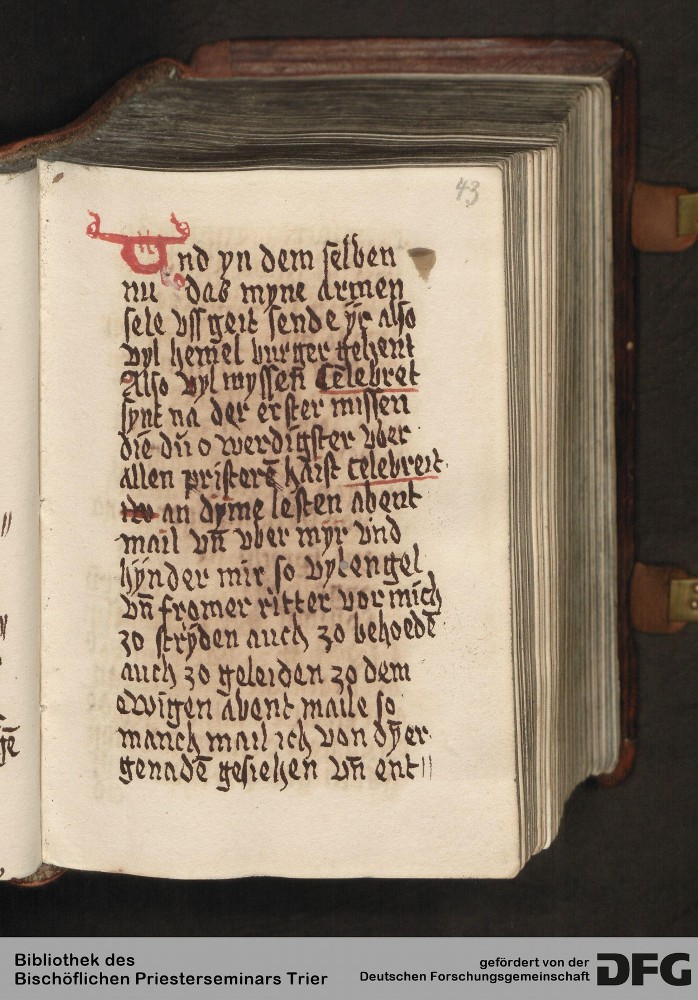 43
Und yn dem selben
nu das myne armen
sele vss geit sende yr also
vyl hemel burger gehent
Also vyl myssen Celebret
synt na der erster missen
die du o werdigster vber
allen pristerē haist celebreit
an dyme lesten abent
mail vn̄ vber myr vnd
hynder mir so vyl engel
vn̄ fromer ritter vor mich
zo stryden auch zo behoedē
auch zo geleiden zo dem
ewigen abent maile so
manch mail ich von dyner
genadē gesiehen vn̄ ent//
Bibliothek des
Bischöflichen Priesterseminars Trier
gefördert von der
Deutschen Forschungsgemeinschaft
DFG